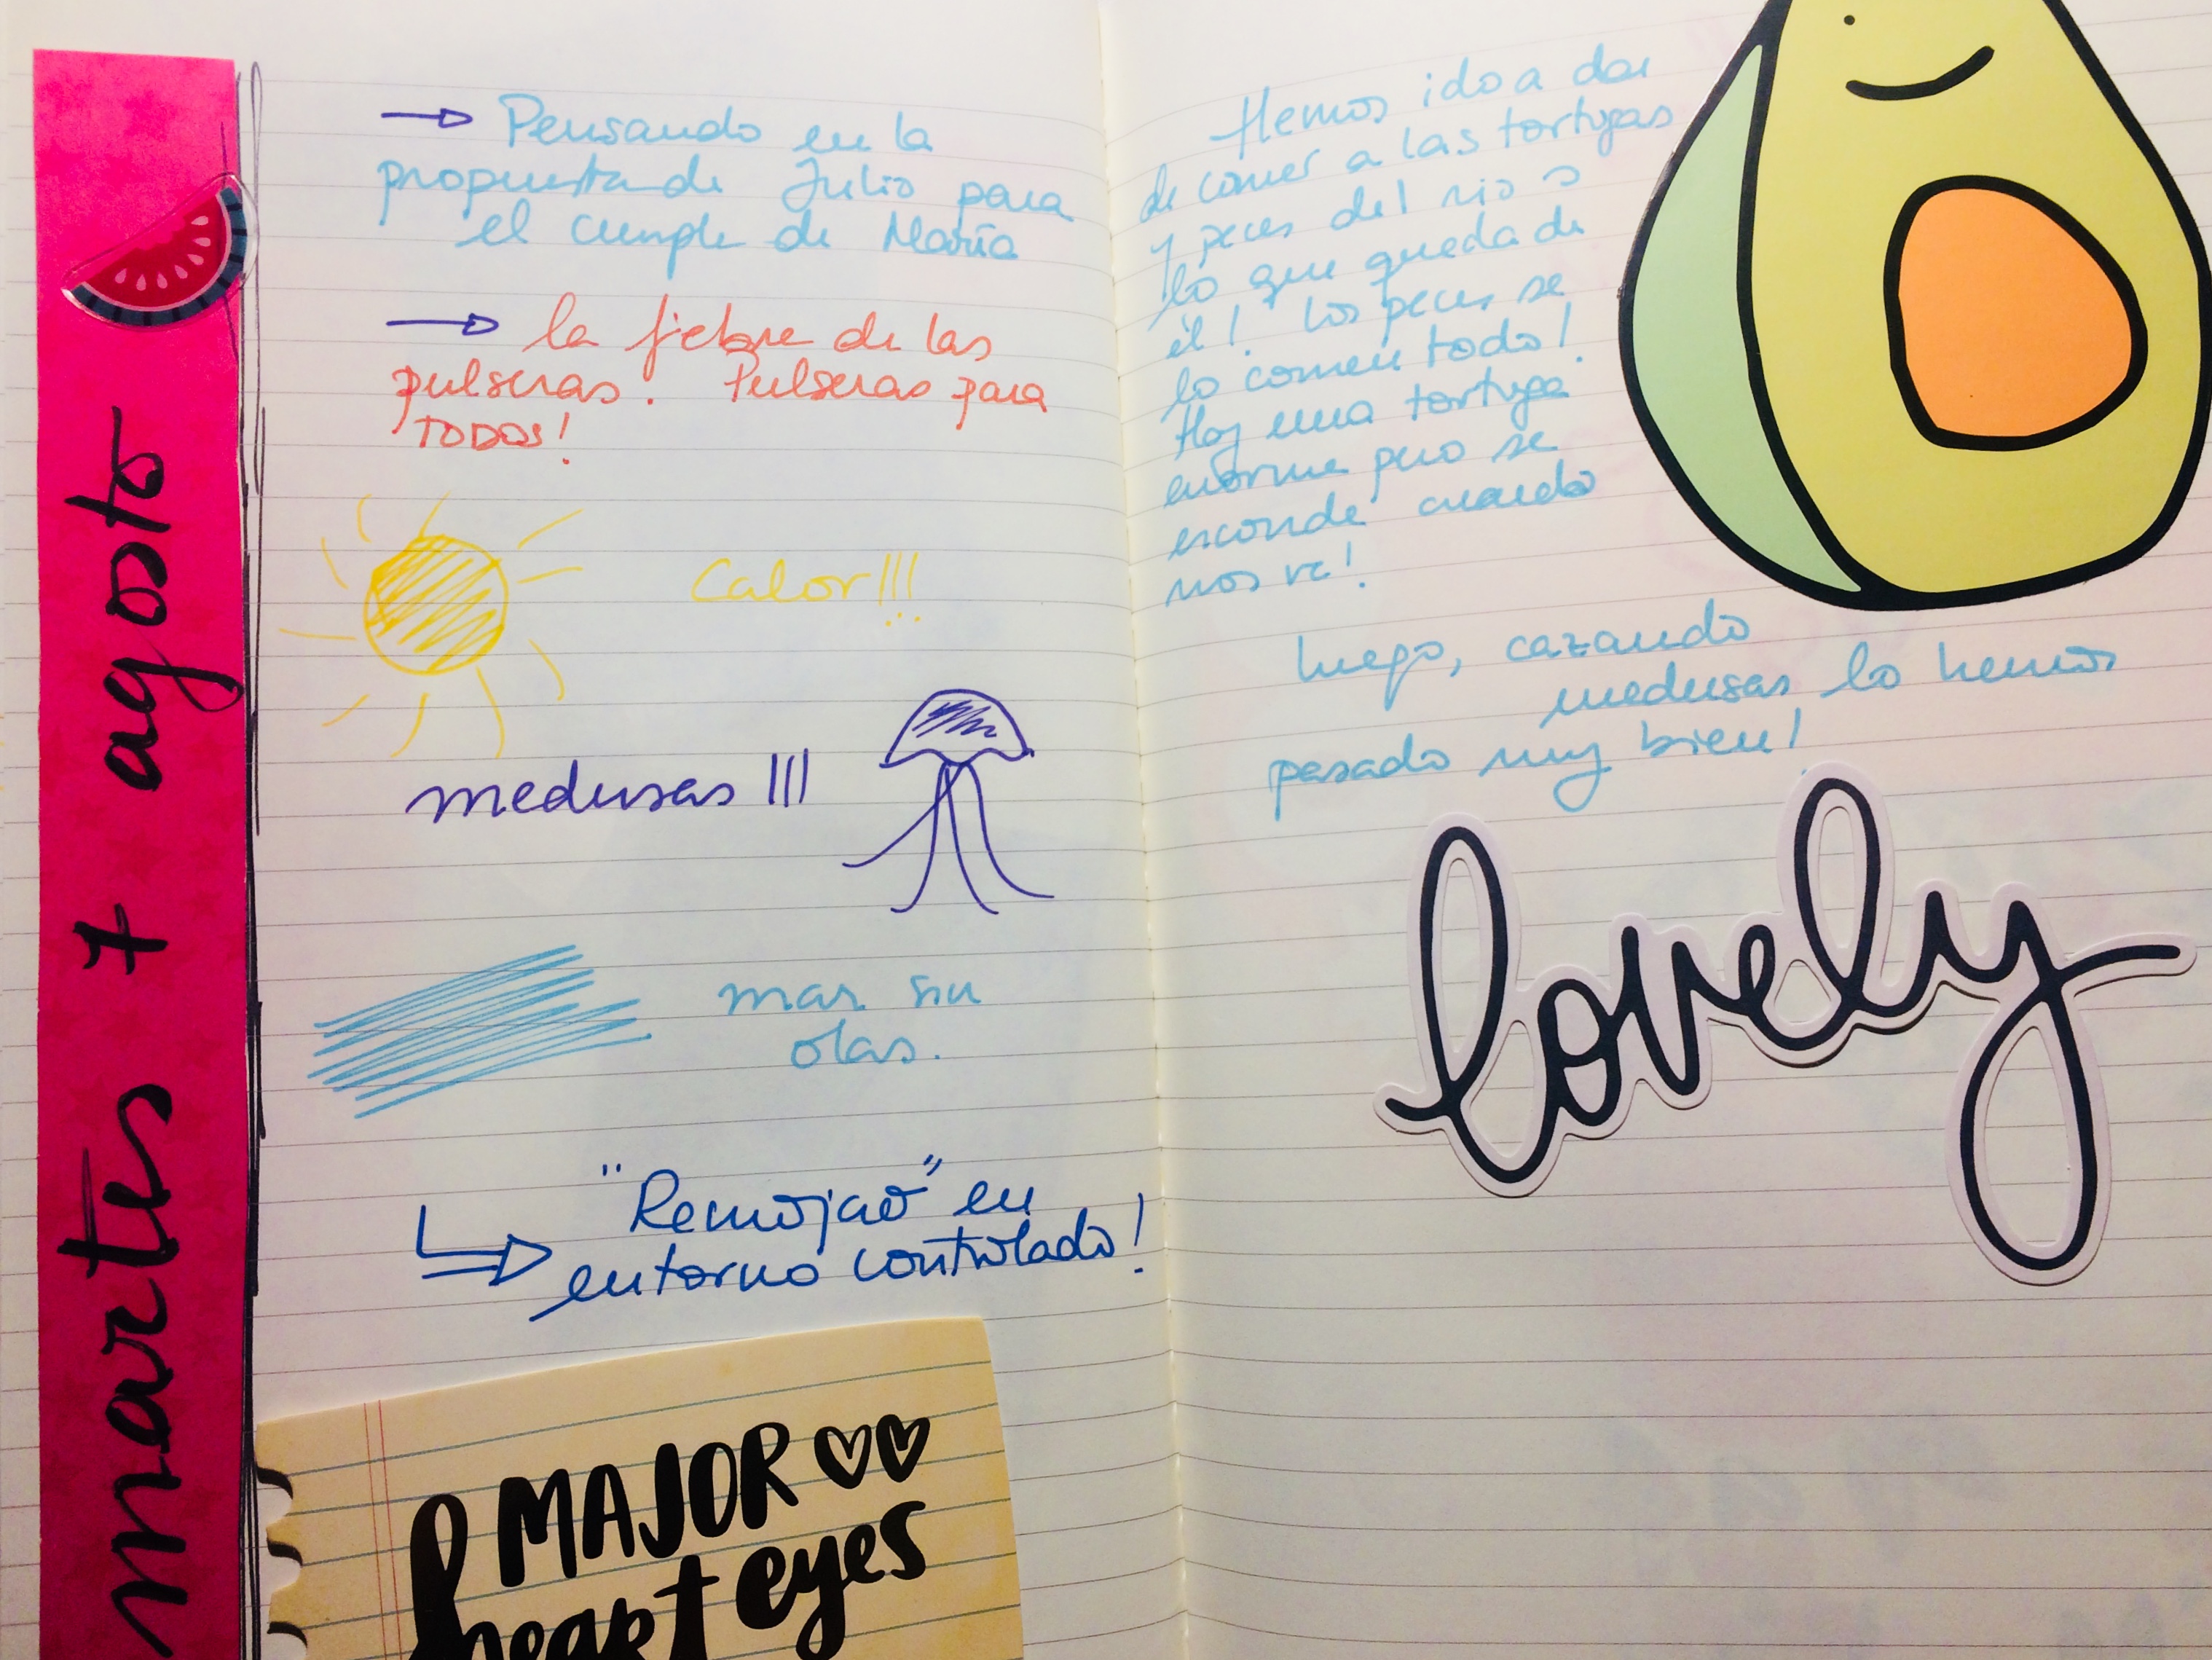 martes 7 agosto
→ Pensando en la
propuesta de Julio para
el cumple de María
→ la fiebre de las
pulseras. Pulseras para
TODOS!
Calor!!!
medusas!!!
mar sin
olas.
"Remojao" en
entorno controlado!
MAJOR ♡♡
heart eyes
Hemos ido a dar
de comer a las tortugas
y peces del rio o
lo que queda de
él! Los peces se
lo comen todo!
Hay una tortuga
enorme pero se
esconde cuando
nos ve!
luego, cazando
medusas lo hemos
pasado muy bien!
lovely